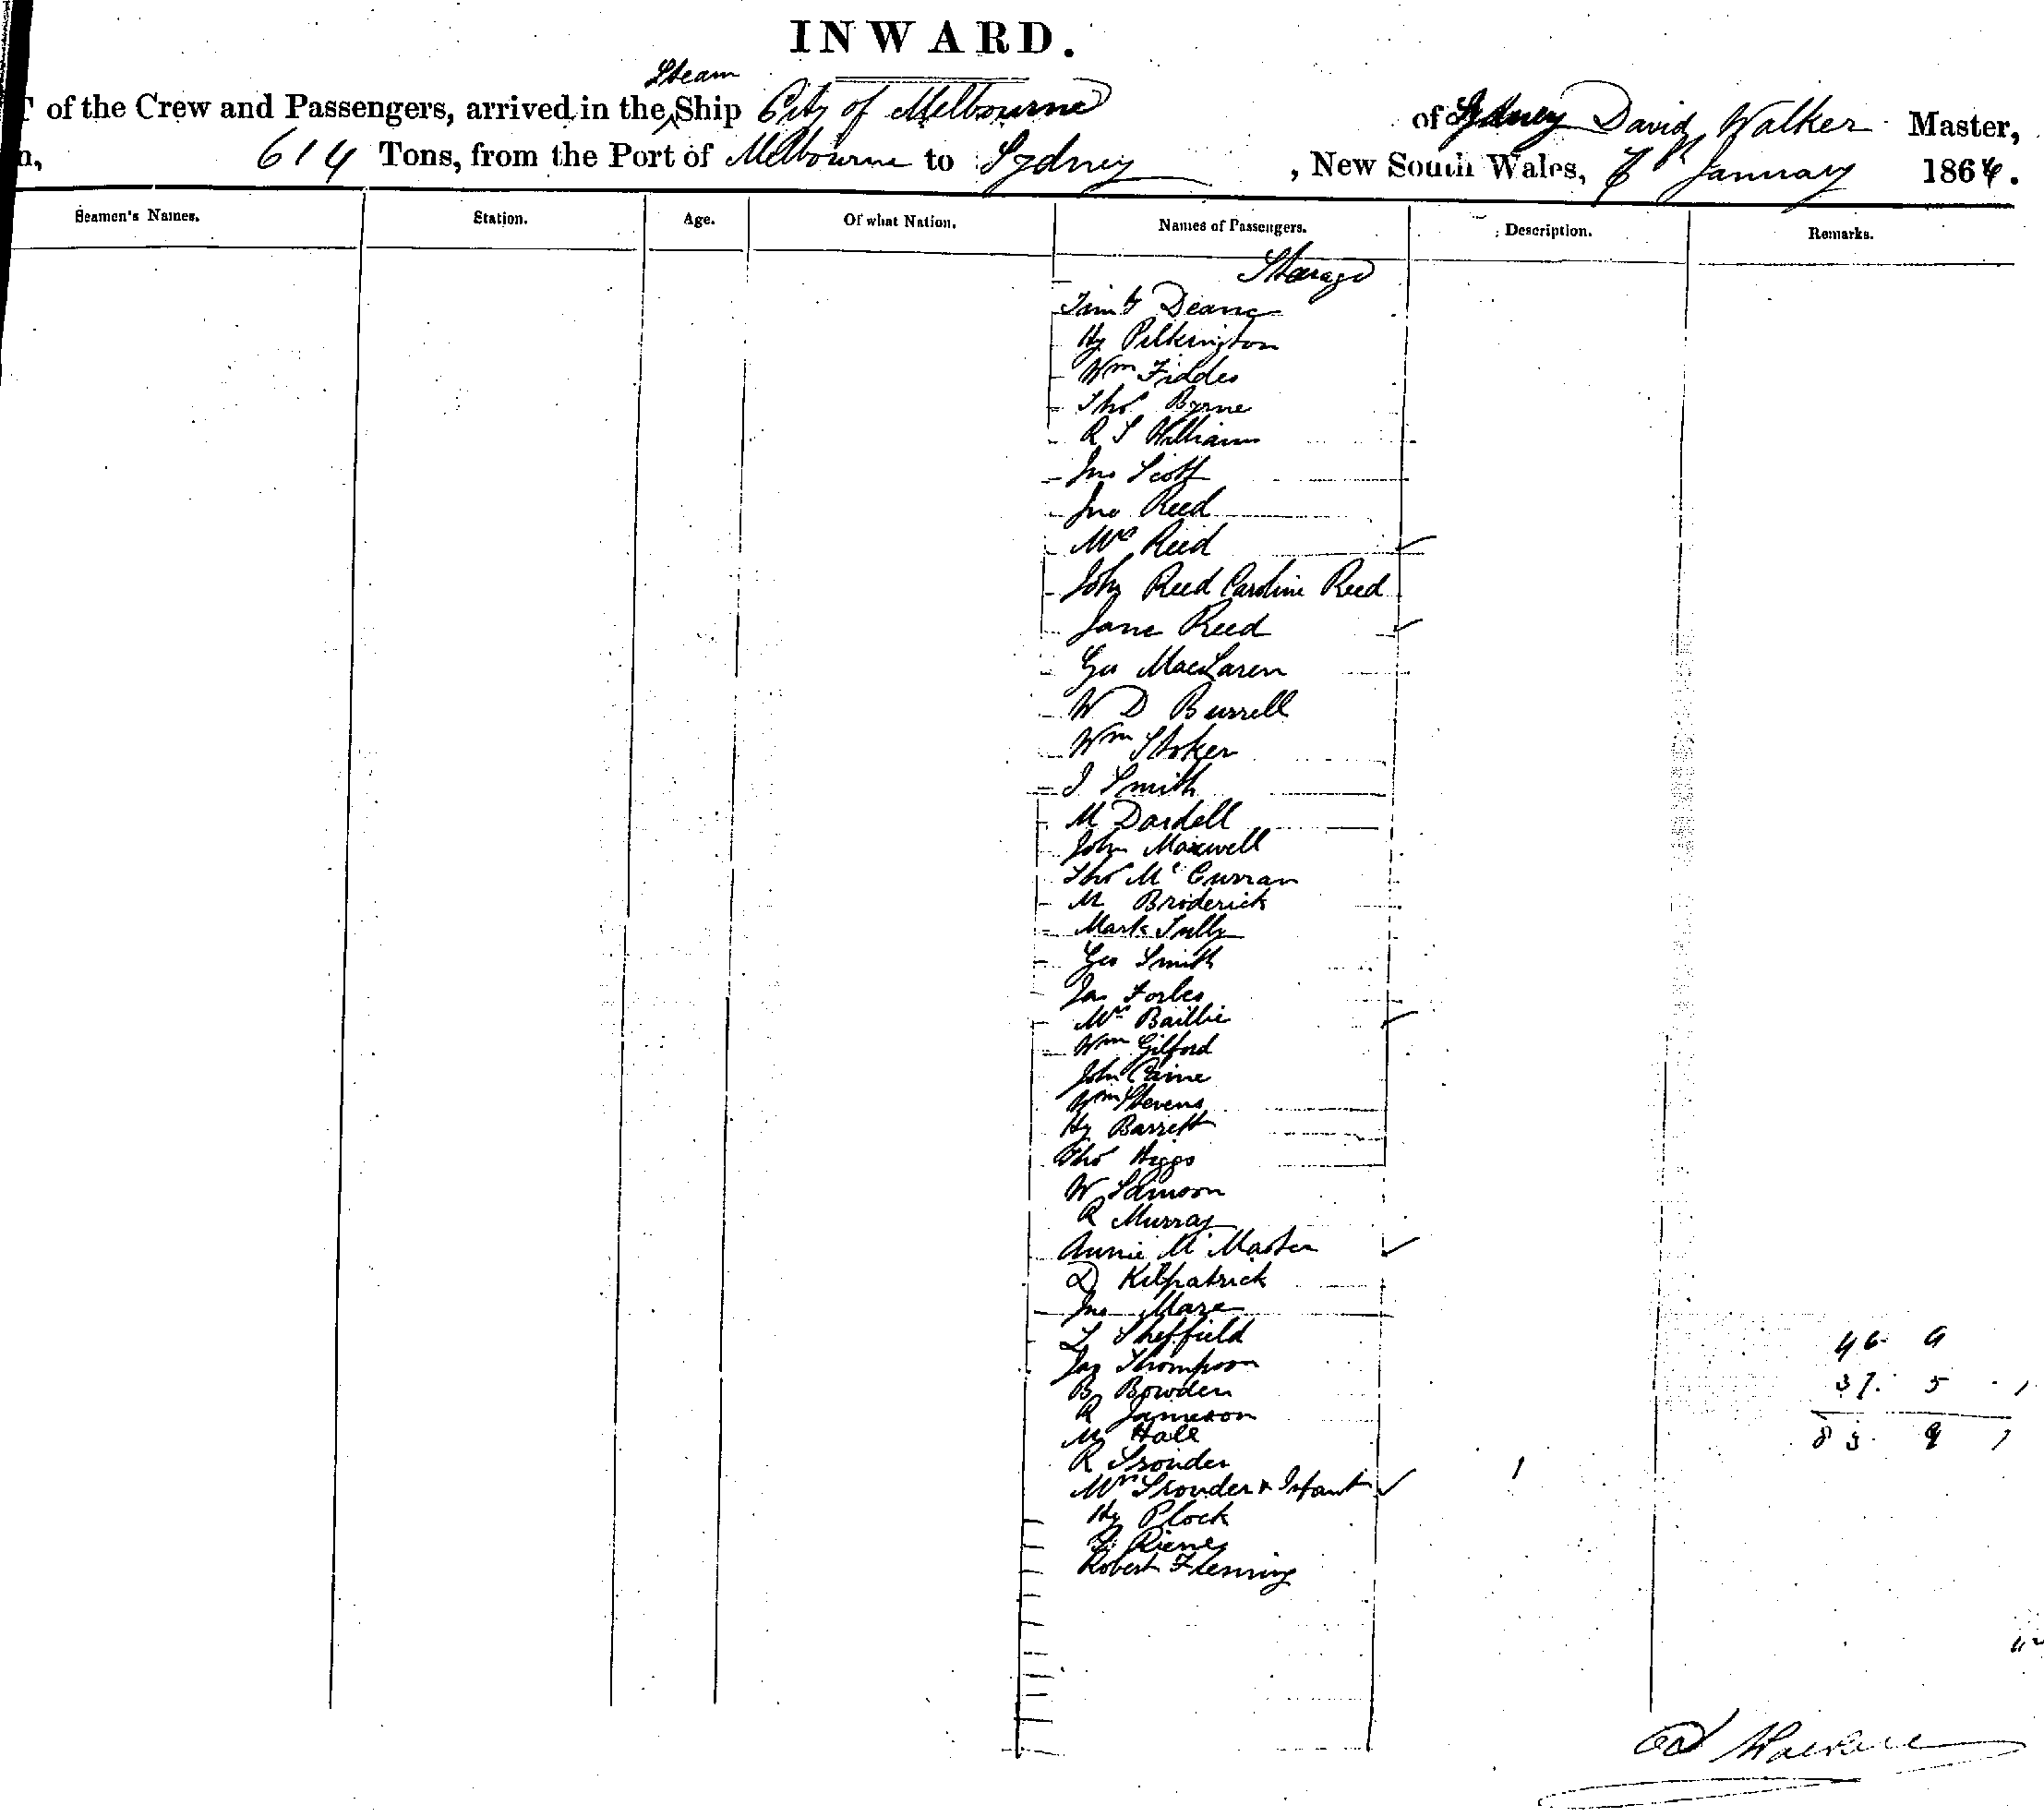 INWARD.
Steam
of the Crew and Passengers, arrived in the Ship City of Melbourne of Sydney David Walker Master,
614 Tons, from the Port of Melbourne to Sydney, New South Wales, January 1864.
Seamen's Names. Station. Age. Of what Nation. Names of Passengers. Description. Remarks.
Steerage
Deane
Hy Pilkington
Wm Fiddes
Thos Byrne
R S Williams
Jno Scott
Jno Reed
Mrs Reed
John Reed Caroline Reed
Jane Reed
Geo MacLaren
W D Burrell
Wm Stoker
J Smith
M Dardell
John Maxwell
Thos McCurran
M Broderick
Mark Tully
Geo Smith
Jas Forbes
Mrs Baillie
Wm Gilford
John Caine
Wm Stevens
Hy Barrett
Thos Higgs
W Samson
R Murray
Annie McMaster
D Kilpatrick
Jno Mare
Sheffield
Jas Thompson
B Bowden
R Jameson
M Hall
R
Mrs & Infant 1
Hy Plock
Robert Fleming
46 9
37. 5 1
83 9 1
Walker